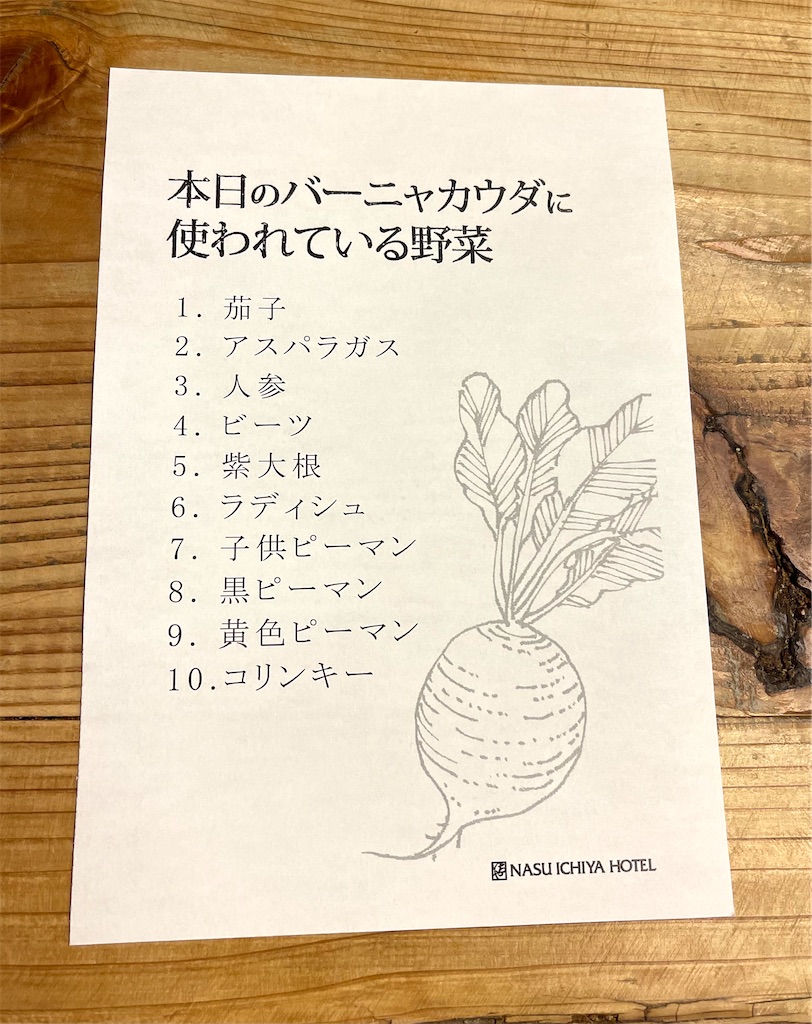 本日のバーニャカウダに
使われている野菜
1. 茄子
2. アスパラガス
3. 人参
4. ビーツ
5. 紫大根
6. ラディシュ
7. 子供ピーマン
8. 黒ピーマン
9. 黄色ピーマン
10.コリンキー
NASU ICHIYA HOTEL